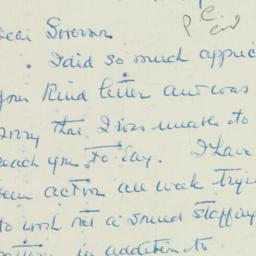 ear Governor
I did so much apprec
your kind letter and was
sorry that I was unable to
each you to-day. I have
een action all week tryi
to work out a sound staffing
in addition to